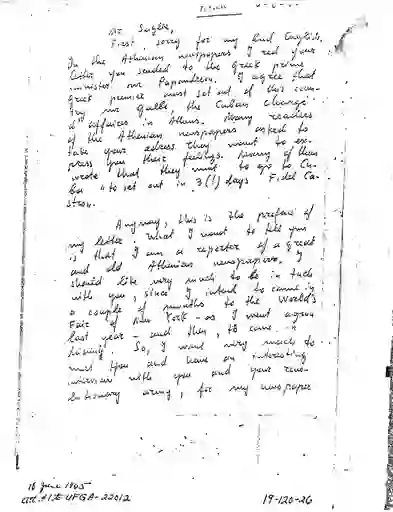 Mr. Sagüe,
First sorry for my bad English.
In the Athenian newspapers I red your
letter you sended to the Greek prime
minister mr Papandreou. I agree that
Greek premier must set out of this coun-
try mr Gallo, the Cuban chargé
d'affaires in Athens. Many readers
of the Athenian newspapers asked to
take your adress. They want to ex-
press you their feelings. Many of them
wrote that they must to go to Cu-
ba "to set out in 3(!) days Fidel Ca-
stro".
Anyway, this is the preface of
my letter. What I want to tell you
is that I am a reporter of a great
and old Athenian newspapers. I
should like very much to be in tuch
with you, since I intend to came in
a couple of mounths to the World's
Fair of New York - as I went
last year - and then, to came
So, I want very much to
meet you and have an interesting
interview with you and your revo-
lutionary army, for my newspaper
16 June 1965
att. #1 to UFGA-22012
19-120-26